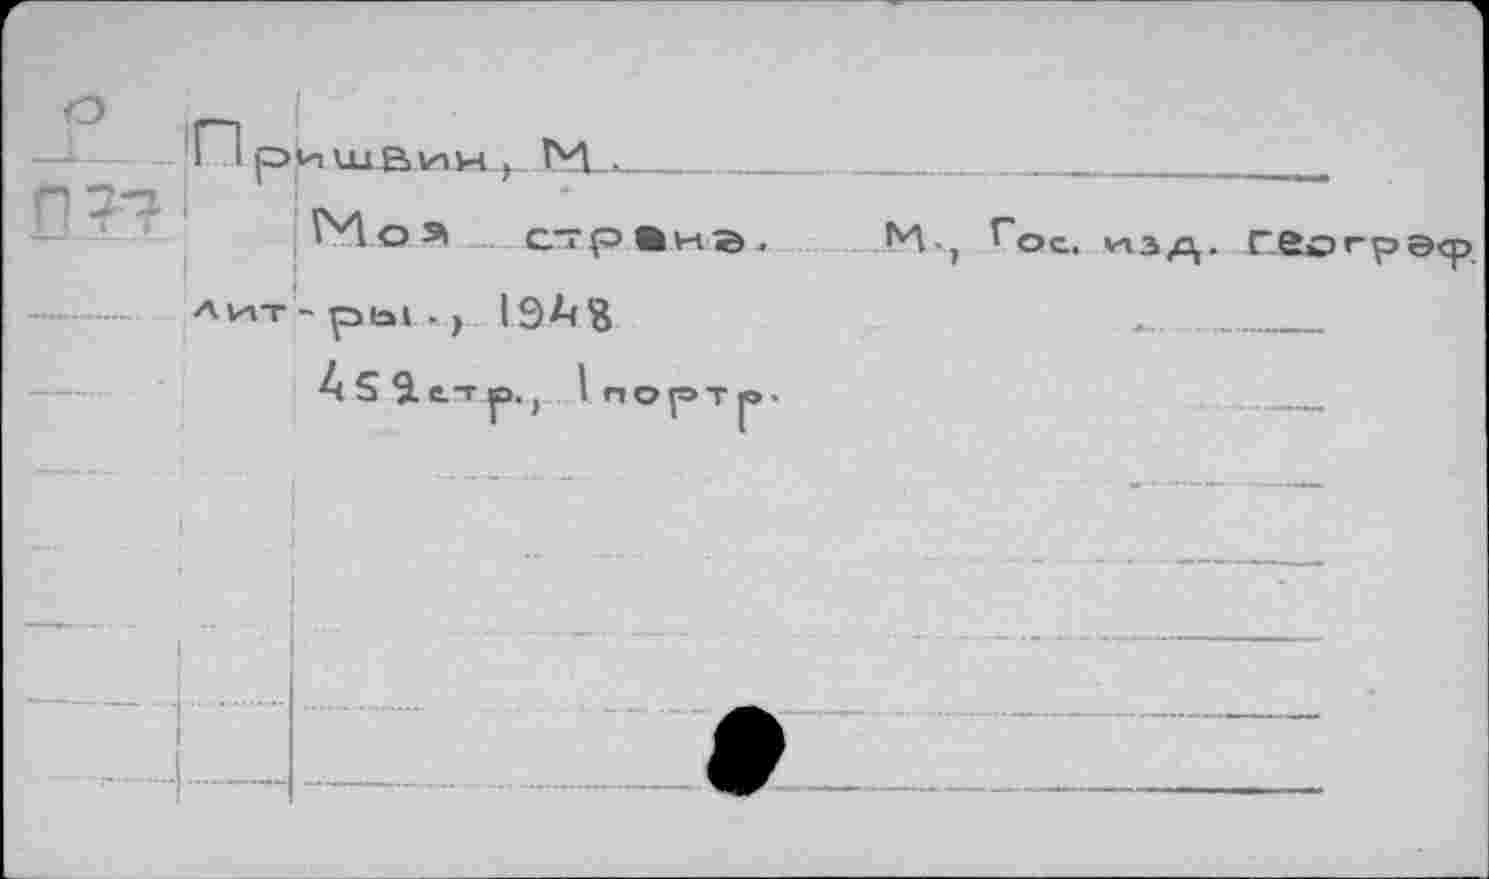 Р
Пришвин, М.
П77
Моя страна. М., Гос. изд. географ.
лит-ры., 1948
452стр., 1портр.